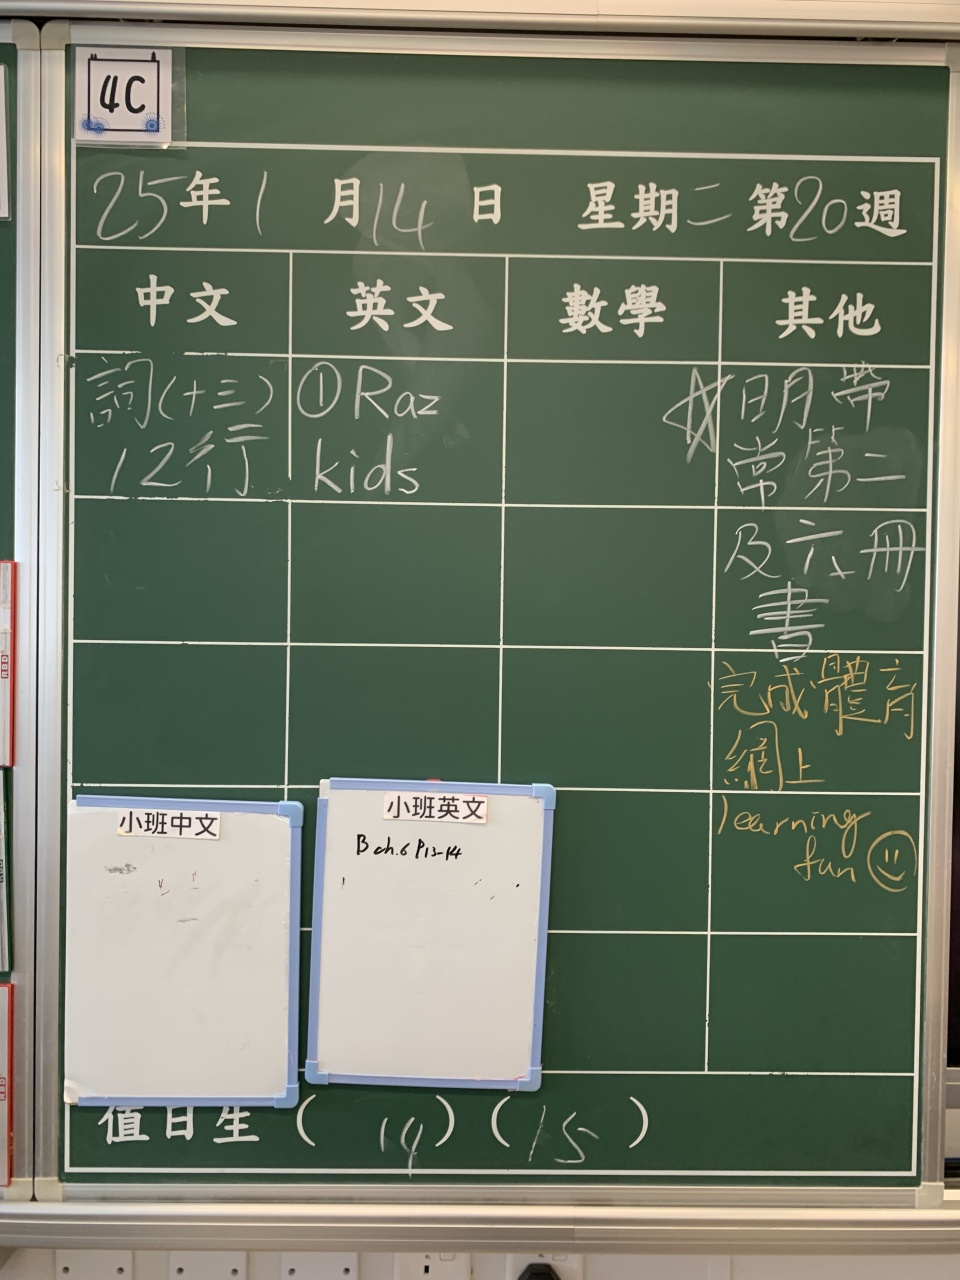 4C
25年1月14日 星期二 第20週
中文 英文 數學 其他
詞(十三)
12行
①Raz
kids
☆明帶
常第二
及六冊
書
完成體育
網上
learning
fun
小班中文
小班英文
B ch.6 P13-14
值日生 ( 14 ) ( 15 )